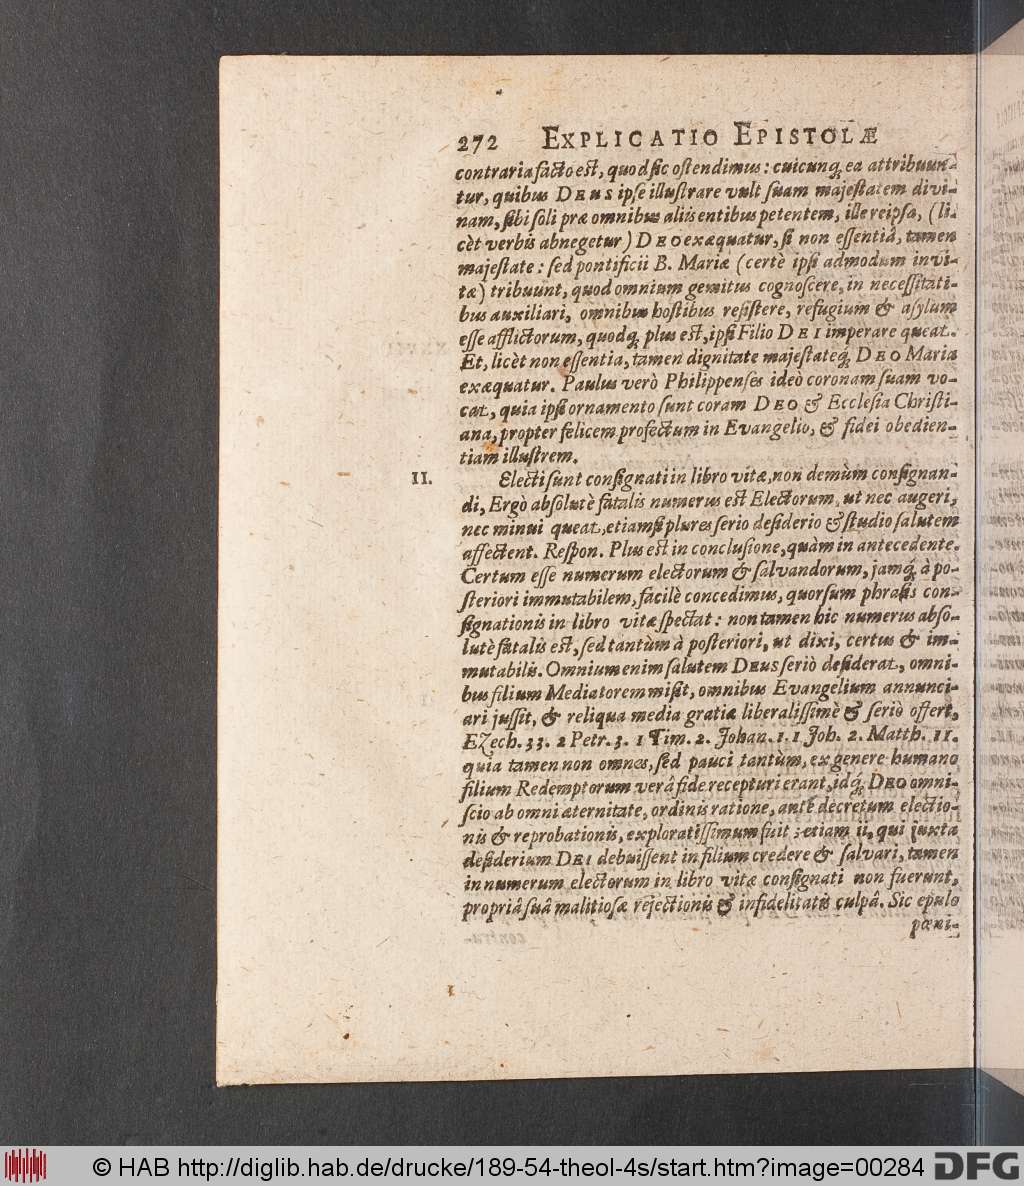 272 EXPLICATIO EPISTOLÆ
contraria facto est, quod sic ostendimus: cuicunq́; ea attribuun-
tur, quibus DEUS ipse illustrare vult suam majestatem divi-
nam, sibi soli præ omnibus aliis entibus petentem, ille reipsa, (li-
cèt verbis abnegetur) DEO exæquatur, si non essentiâ, tamen
majestate: sed pontificii B. Mariæ (certè ipsi admodum invi-
tæ) tribuunt, quod omnium gemitus cognoscere, in necessitati-
bus auxiliari, omnibus hostibus resistere, refugium & asylum
esse afflictorum, quodq́; plus est, ipsi Filio DEI imperare queat.
Et, licèt non essentia, tamen dignitate majestateq́; DEO Maria
exæquatur. Paulus verò Philippenses ideò coronam suam vo-
cat, quia ipsi ornamento sunt coram DEO & Ecclesia Christi-
ana, propter felicem profectum in Evangelio, & fidei obedien-
tiam illustrem.
II. Electi sunt consignati in libro vitæ, non demùm consignan-
di, Ergò absolutè fatalis numerus est Electorum, ut nec augeri,
nec minui queat, etiamsi plures serio desiderio & studio salutem
affectent. Respon. Plus est in conclusione, quàm in antecedente.
Certum esse numerum electorum & salvandorum, jamq́; à po-
steriori immutabilem, facilè concedimus, quorsum phrasis con-
signationis in libro vitæ spectat: non tamen hic numerus abso-
lutè fatalis est, sed tantùm à posteriori, ut dixi, certus & im-
mutabilis. Omnium enim salutem DEUS seriò desiderat, omni-
bus filium Mediatorem misit, omnibus Evangelium annunci-
ari jussit, & reliqua media gratiæ liberalissimè & seriò offert,
EZech. 33. 2 Petr. 3. 1 Tim. 2. Johan. 1. 1 Joh. 2. Matth. 11.
quia tamen non omnes, sed pauci tantùm, ex genere humano
filium Redemptorum verâ fide recepturi erant, idq́; DEO omni-
scio ab omni æternitate, ordinis ratione, ante decretum electio-
nis & reprobationis, exploratissimum fuit: etiam ii, qui juxta
desiderium DEI debuissent in filium credere & salvari, tamen
in numerum electorum in libro vitæ consignati non fuerunt,
propriâ suâ malitiosæ rejectionis & infidelitatis culpâ. Sic epulo
pœni-
© HAB http://diglib.hab.de/drucke/189-54-theol-4s/start.htm?image=00284 DFG